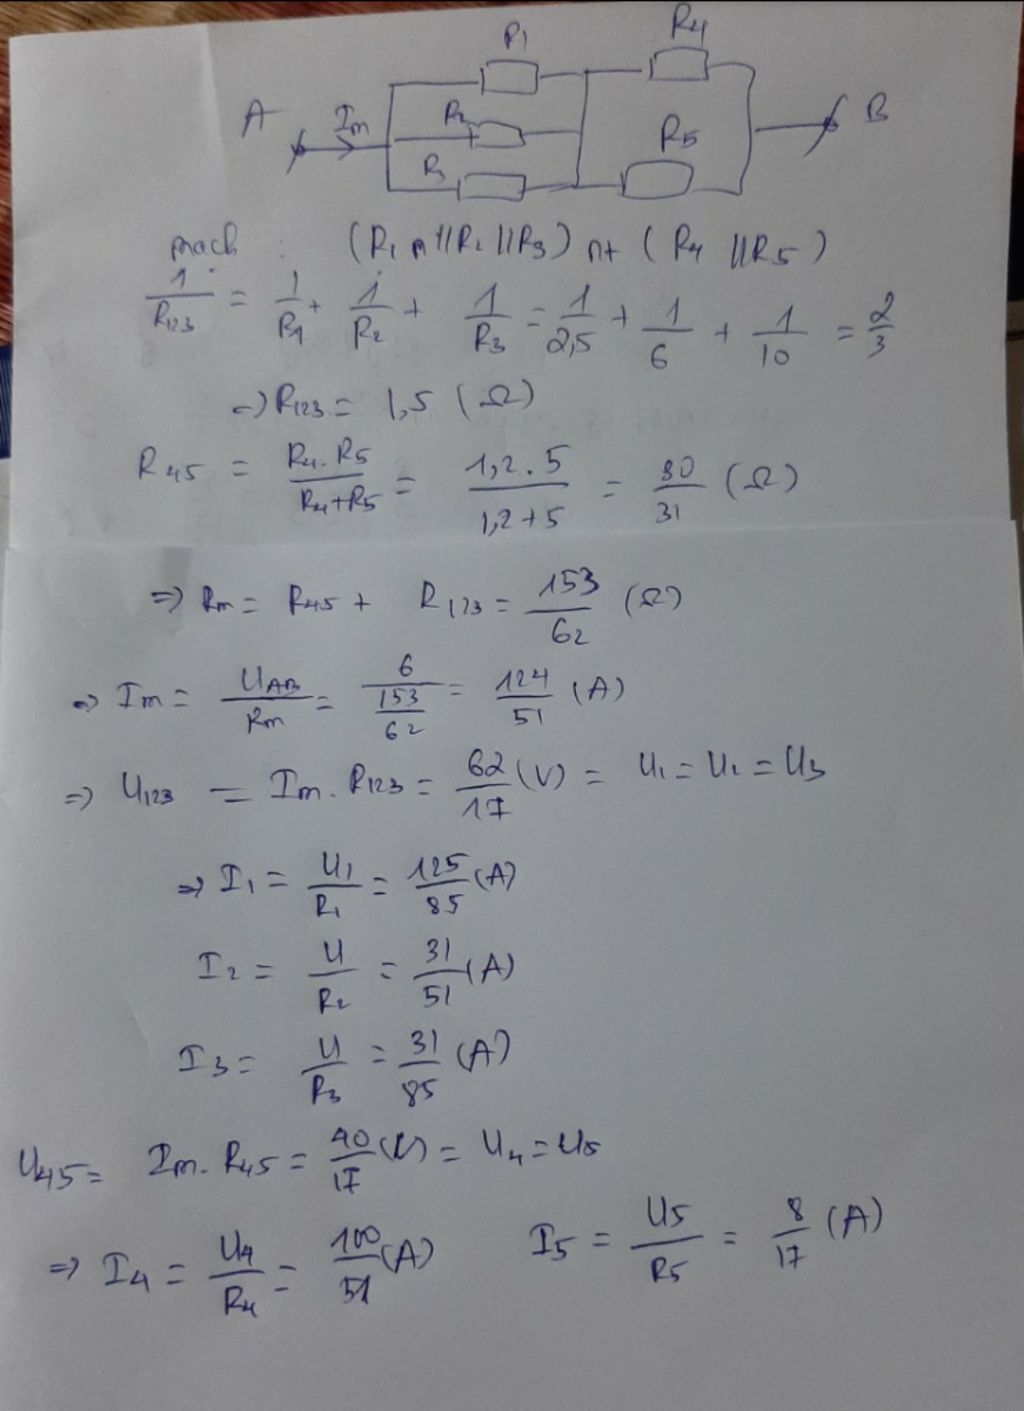 R1 R4
A Im R2 R5 B
R3
mạch : (R1 // R2 // R3) nt (R4 // R5)
1/R123 = 1/R1 + 1/R2 + 1/R3 = 1/2,5 + 1/6 + 1/10 = 2/3
=> R123 = 1,5 (Ω)
R45 = R4.R5/R4+R5 = 1,2.5/1,2+5 = 30/31 (Ω)
=> Rm = R45 + R123 = 153/62 (Ω)
=> Im = UAB/Rm = 6/(153/62) = 124/51 (A)
=> U123 = Im.R123 = 62/17 (V) = U1 = U2 = U3
=> I1 = U1/R1 = 125/85 (A)
I2 = U/R2 = 31/51 (A)
I3 = U/R3 = 31/85 (A)
U45 = Im.R45 = 40/17 (V) = U4 = U5
=> I4 = U4/R4 = 100/51 (A) I5 = U5/R5 = 8/17 (A)